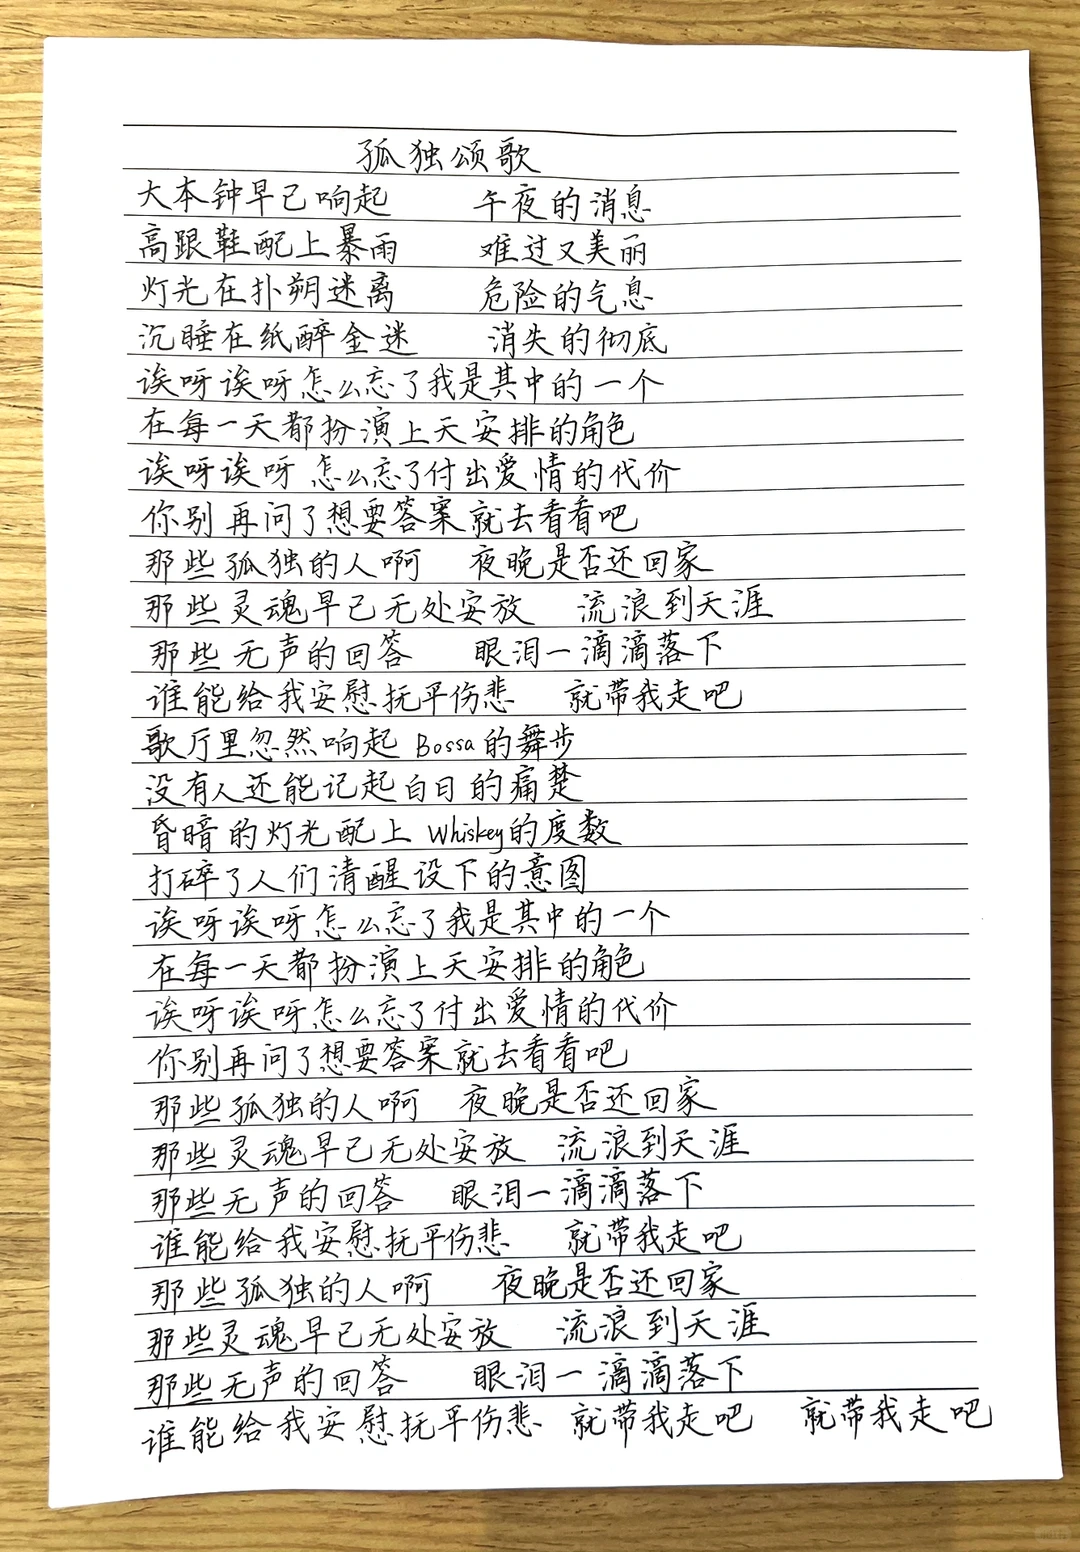 孤独颂歌
大本钟早已响起 午夜的消息
高跟鞋配上暴雨 难过又美丽
灯光在扑朔迷离 危险的气息
沉睡在纸醉金迷 消失的彻底
诶呀诶呀怎么忘了我是其中的一个
在每一天都扮演上天安排的角色
诶呀诶呀 怎么忘了付出爱情的代价
你别再问了想要答案就去看看吧
那些孤独的人啊 夜晚是否还回家
那些灵魂早已无处安放 流浪到天涯
那些无声的回答 眼泪一滴滴落下
谁能给我安慰抚平伤悲 就带我走吧
歌厅里忽然响起Bossa的舞步
没有人还能记起白日的痛楚
昏暗的灯光配上Whiskey的度数
打碎了人们清醒设下的意图
诶呀诶呀怎么忘了我是其中的一个
在每一天都扮演上天安排的角色
诶呀诶呀怎么忘了付出爱情的代价
你别再问了想要答案就去看看吧
那些孤独的人啊 夜晚是否还回家
那些灵魂早已无处安放 流浪到天涯
那些无声的回答 眼泪一滴滴落下
谁能给我安慰抚平伤悲 就带我走吧
那些孤独的人啊 夜晚是否还回家
那些灵魂早已无处安放 流浪到天涯
那些无声的回答 眼泪一滴滴落下
谁能给我安慰抚平伤悲 就带我走吧 就带我走吧